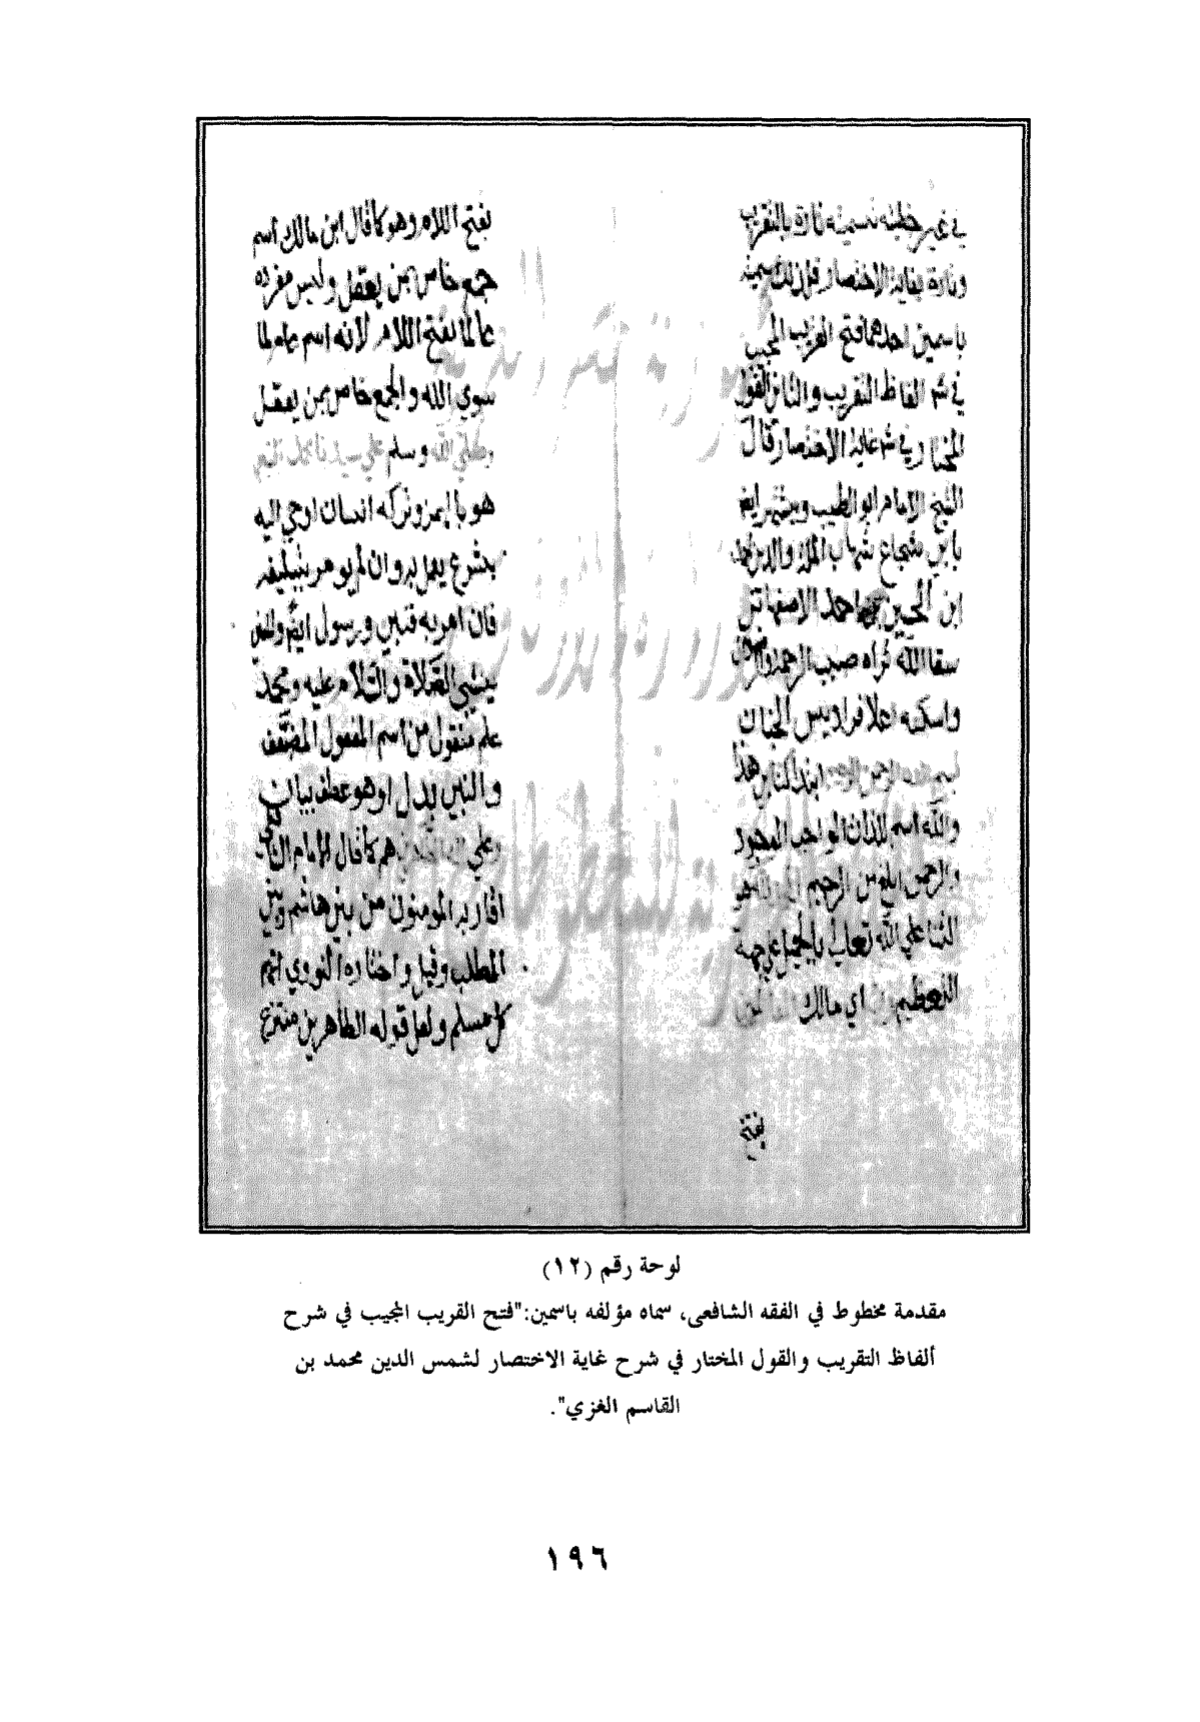 في غير خطبته تسميته تارة بالتقريب
وتارة بغاية الاختصار فلذلك سميته
باسمين احدهما فتح القريب المجيب
في شرح الفاظ التقريب والثاني القول
المختار في شرح غاية الاختصار قال
الشيخ الامام ابو الطيب ويشتهر ايضا
بابي شجاع شهاب الملة والدين احمد
ابن الحسين بن احمد الاصفهاني
سقا الله ثراه صبيب الرحمة والرضوان
واسكنه اعلا فراديس الجنان
بسم الله الرحمن الرحيم ابتدا كتابي هذا
والله اسم للذات الواجب الوجود
والرحمن ابلغ من الرحيم الحمد لله هو
الثنا علي الله تعالي بالجميل علي جهة
التعظيم رب اي مالك العالمين
بفتح
بفتح اللام وهو كما قال ابن مالك اسم
جمع خاص بمن يعقل وليس مفرده
عالما بفتح اللام لانه اسم عام لما
سوي الله والجمع خاص بمن يعقل
وصلي الله وسلم علي سيدنا محمد النبي
هو بالهمز وتركه انسان اوحي اليه
بشرع يعمل به وان لم يومر بتبليغه
فان امر به فنبي ورسول ايضا والمعني
ينشي الصلاة والسلام عليه ومحمد
علم منقول من اسم المفعول المضعف
والنبي بدل او هو عطف بيان
وعلي اله هم كما قال الامام الشافعي
اقاربه المومنون من بني هاشم وبني
المطلب وقيل واختاره النووي انهم
كل مسلم ولعل قوله الطاهرين منتزع
لوحة رقم (١٢)
مقدمة مخطوط في الفقه الشافعى، سماه مؤلفه باسمين:"فتح القريب المجيب في شرح
ألفاظ التقريب والقول المختار في شرح غاية الاختصار لشمس الدين محمد بن
القاسم الغزي".
١٩٦